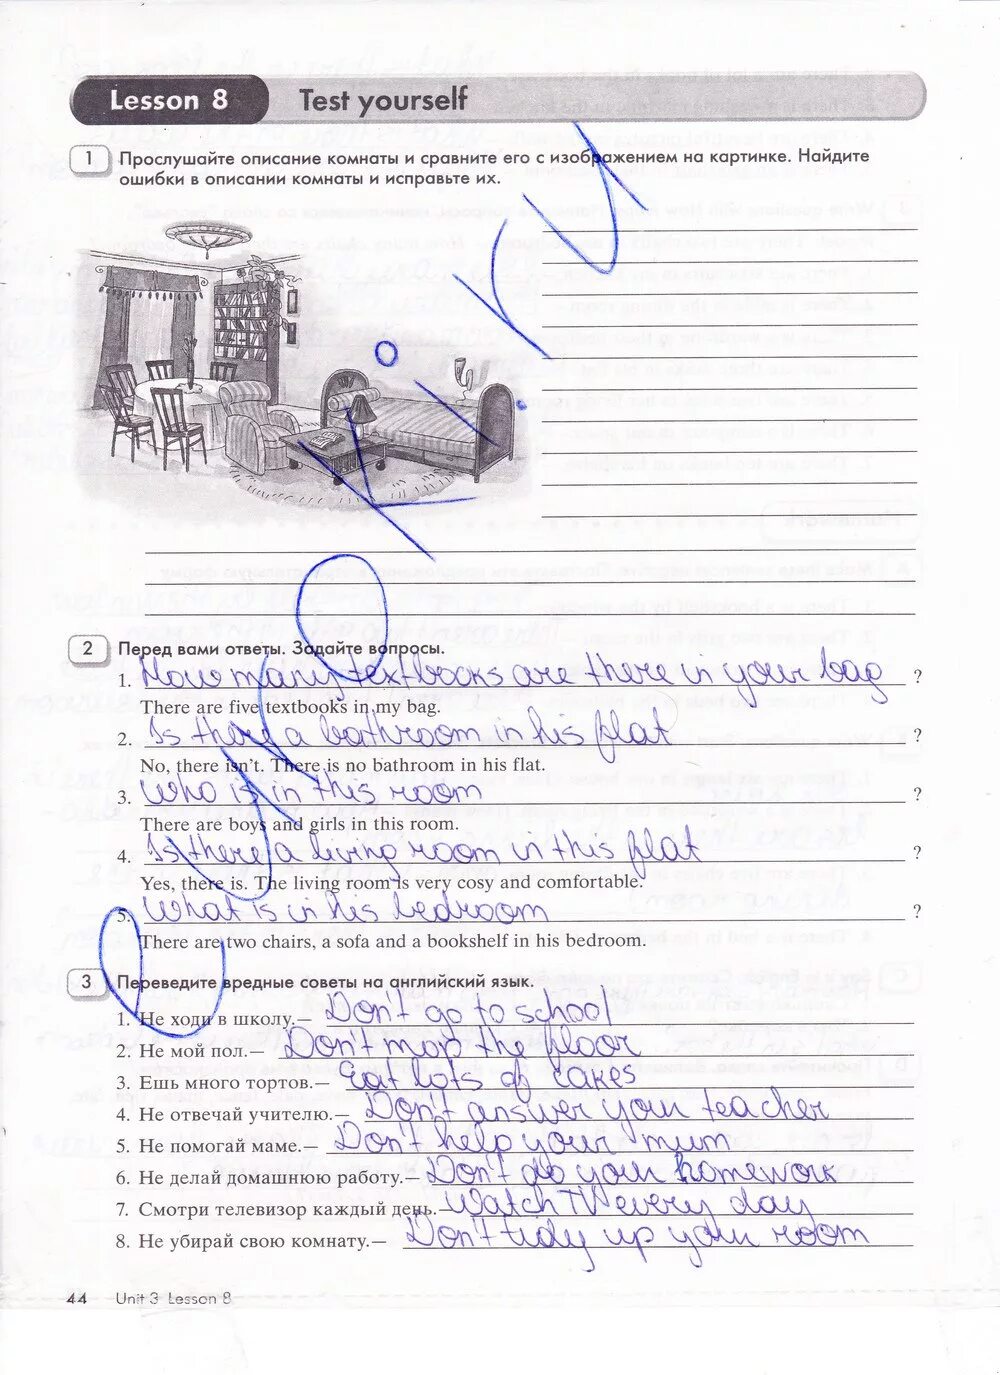 Lesson 8 Test yourself
1 Прослушайте описание комнаты и сравните его с изображением на картинке. Найдите
ошибки в описании комнаты и исправьте их.
2 Перед вами ответы. Задайте вопросы.
1. How many textbooks are there in your bag ?
There are five textbooks in my bag.
2. Is there a bathroom in his flat ?
No, there isn't. There is no bathroom in his flat.
3. Who is in this room ?
There are boys and girls in this room.
4. Is there a living room in this flat ?
Yes, there is. The living room is very cosy and comfortable.
5. What is in his bedroom ?
There are two chairs, a sofa and a bookshelf in his bedroom.
3 Переведите вредные советы на английский язык.
1. Не ходи в школу.— Don't go to school
2. Не мой пол.— Don't mop the floor
3. Ешь много тортов.— Eat lots of cakes
4. Не отвечай учителю.— Don't answer your teacher
5. Не помогай маме.— Don't help your mum
6. Не делай домашнюю работу.— Don't do your homework
7. Смотри телевизор каждый день.— Watch TV every day
8. Не убирай свою комнату.— Don't tidy up your room
44 Unit 3 Lesson 8